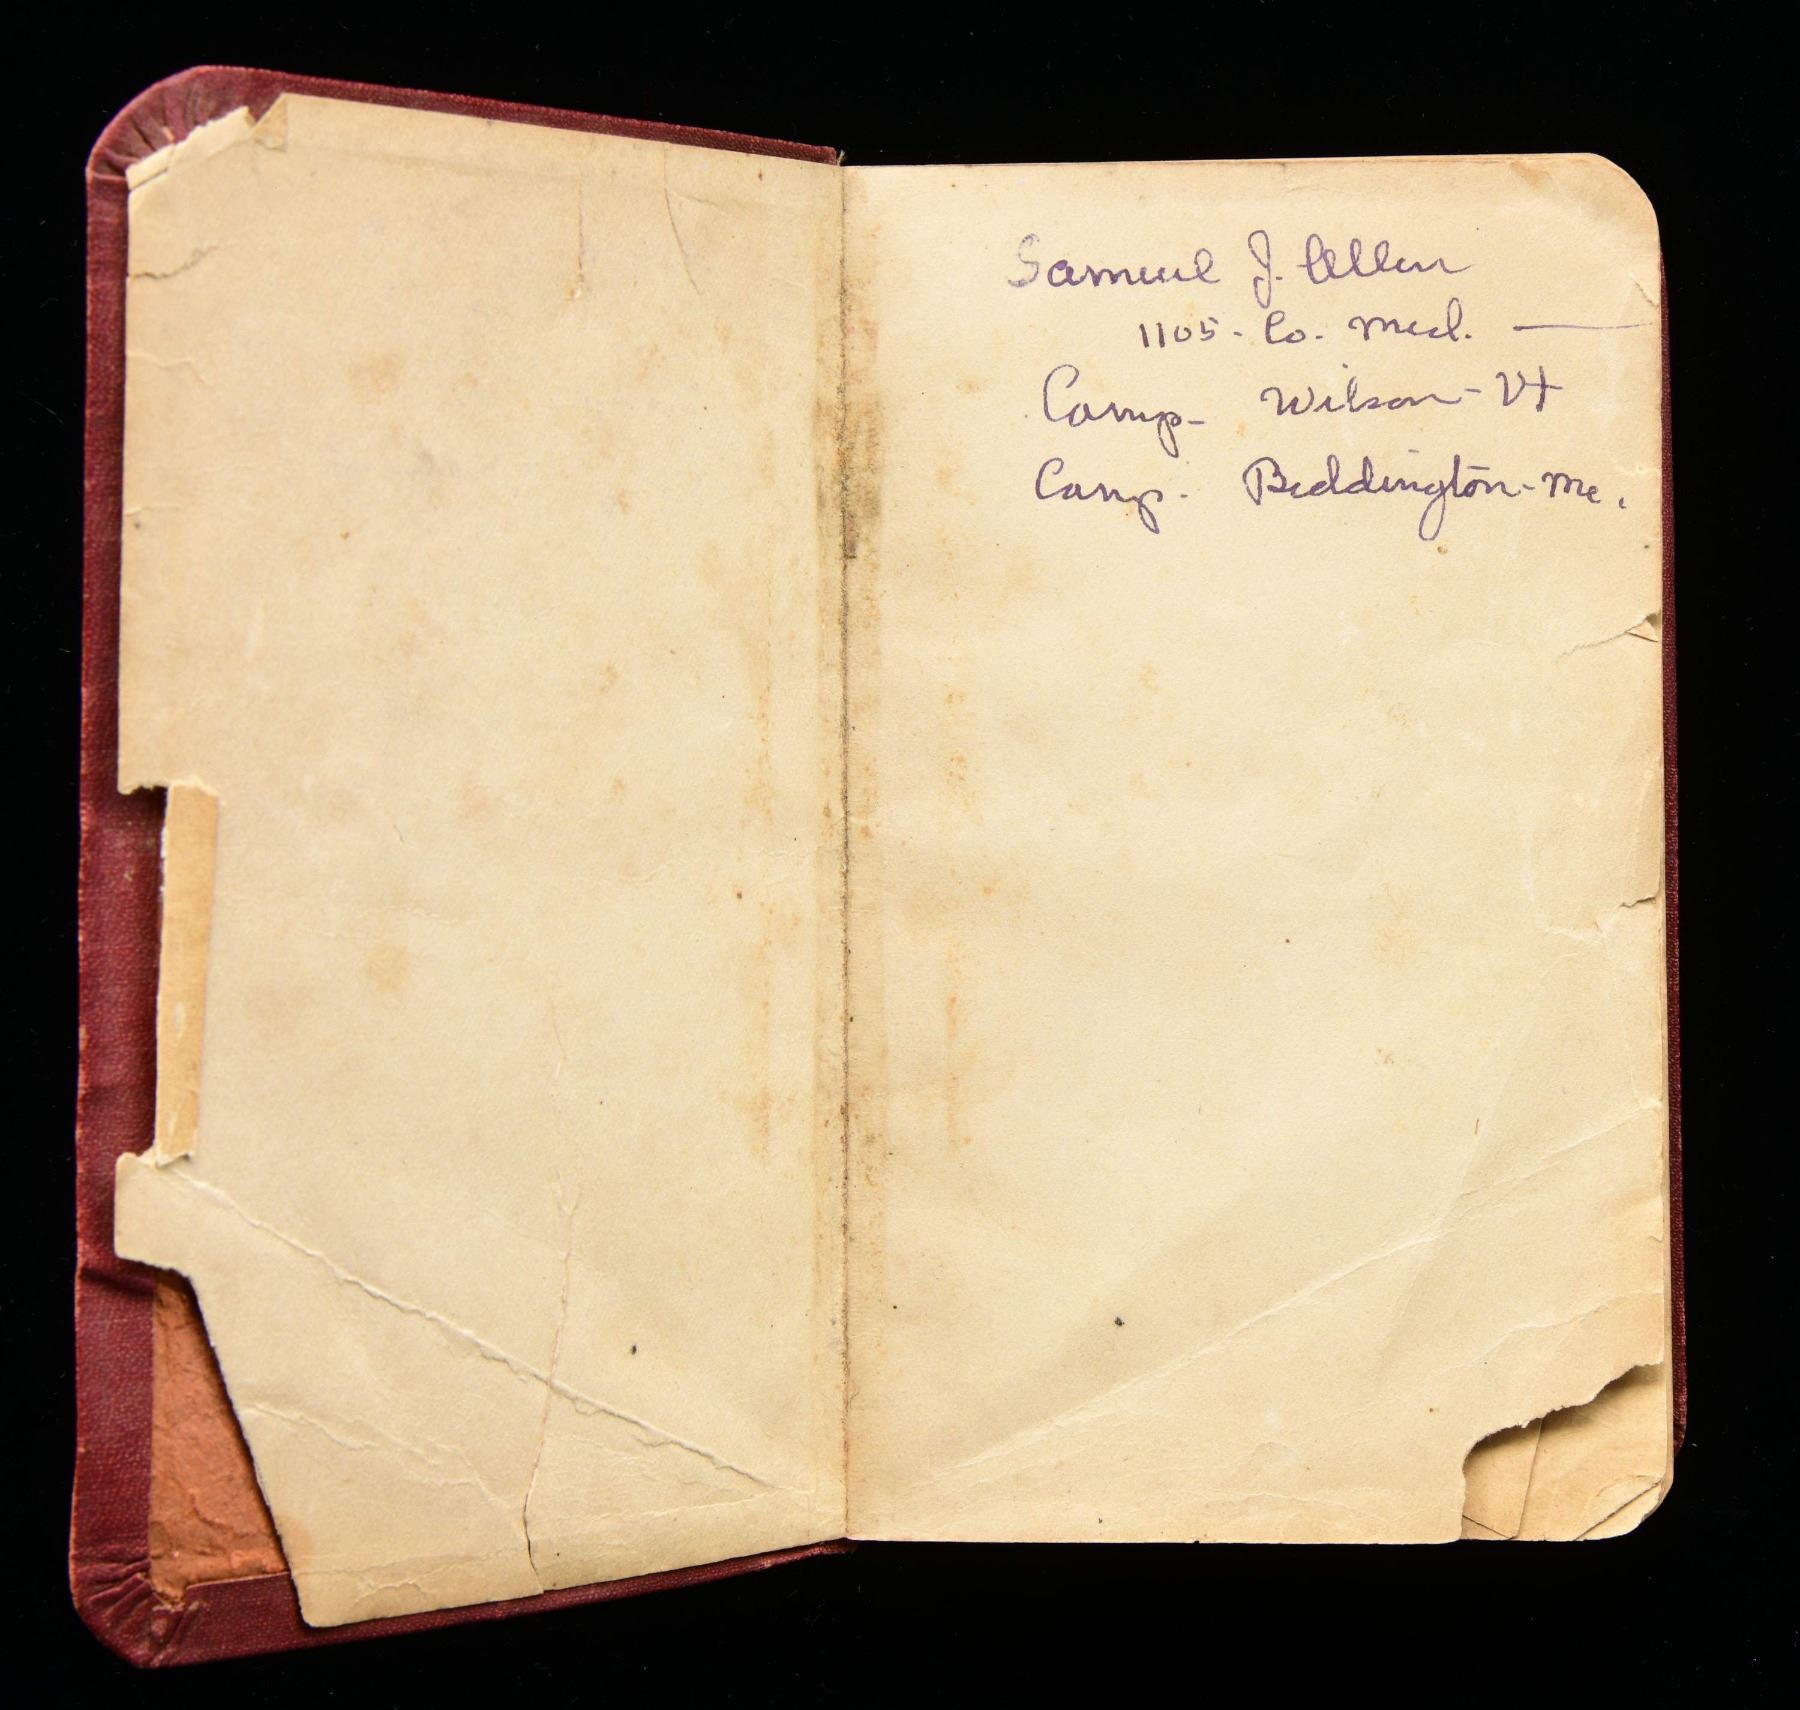 Samuel J. Allen
1105 - Co. Med. —
Camp - Wilson - Vt
Camp - Beddington - Me.